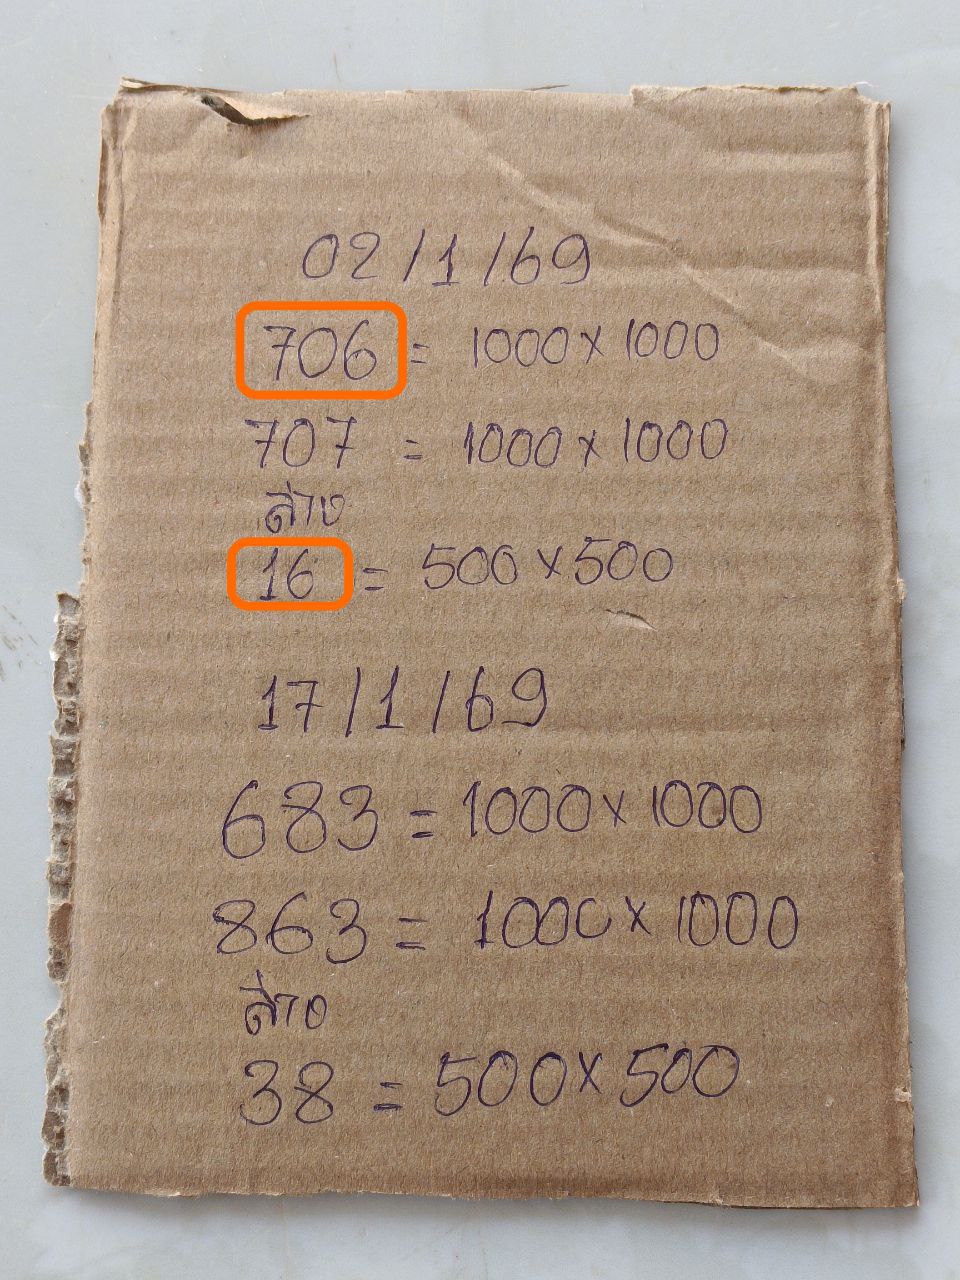 02/1/69
706 = 1000×1000
707 = 1000×1000
ล่าง
16 = 500×500
17/1/69
683 = 1000×1000
863 = 1000×1000
ล่าง
38 = 500×500